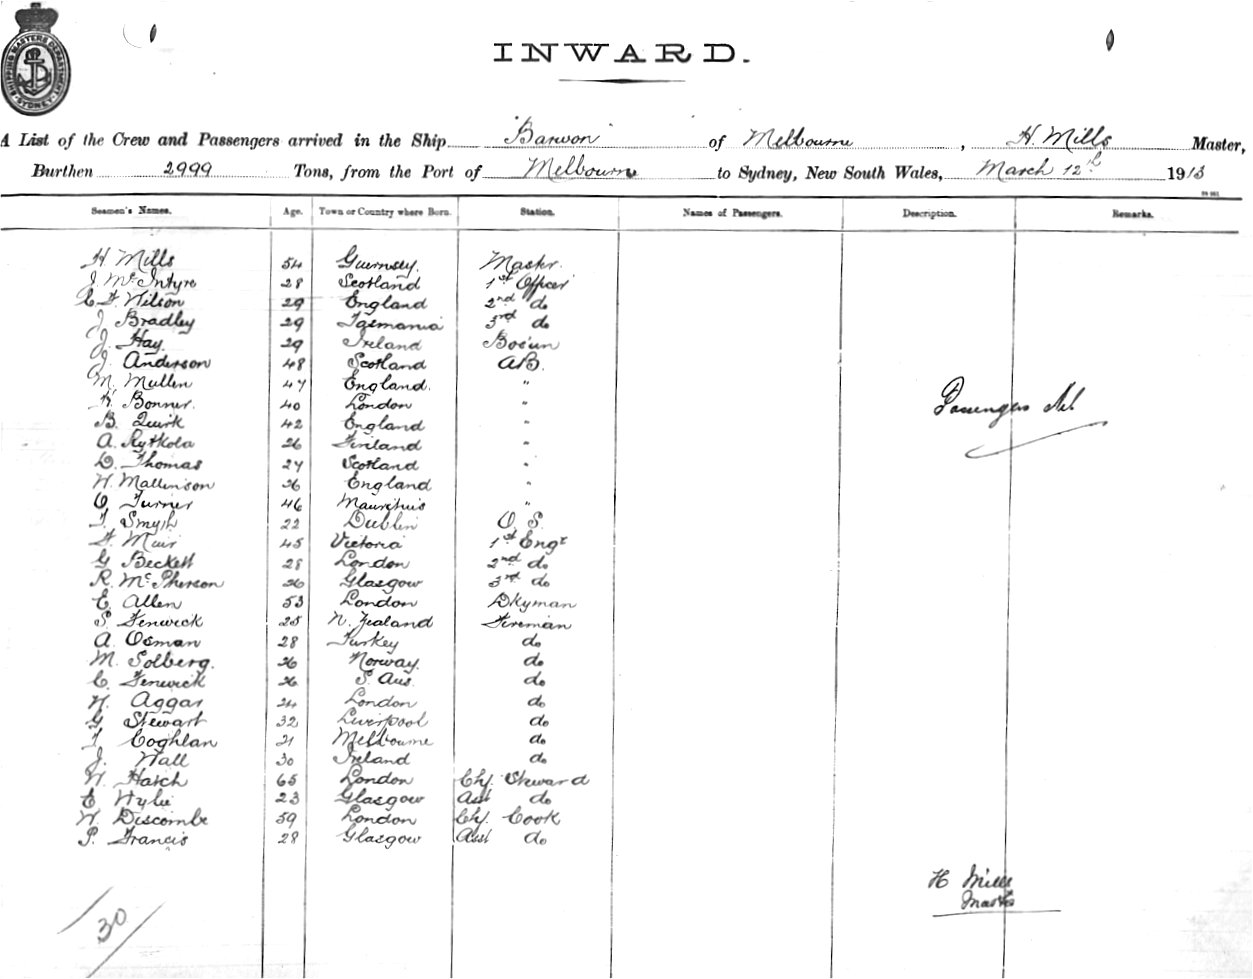 SHIPPING MASTERS DEPARTMENT SYDNEY
INWARD.
A List of the Crew and Passengers arrived in the Ship "Barwon" of Melbourne, H. Mills Master,
Burthen 2999 Tons, from the Port of Melbourne to Sydney, New South Wales, March 12th 1913
Seamen's Names. Age. Town or Country where Born. Station. Names of Passengers. Description. Remarks.
H Mills 54 Guernsey. Master.
J. McIntyre 28 Scotland 1st Officer
C F Wilson 29 England 2nd do
J Bradley 29 Tasmania 3rd do
J. Hay. 29 Ireland Bosun
J. Anderson 48 Scotland AB.
M. Mullen 47 England. "
H. Bonner. 40 London "
B. Quirk 42 England "
A. Rytkola 26 Finland "
D. Thomas 27 Scotland "
W. Mallinson 26 England "
O Turner 46 Mauritius "
T. Smyth 22 Dublin O. S.
F. Muir 45 Victoria 1st Engr
G Beckett 28 London 2nd do
R. McPherson 26 Glasgow 3rd do
E. Allen 53 London Dkyman
S. Fenwick 25 N. Zealand Fireman
A. Osman 28 Turkey do
M. Solberg. 26 Norway. do
C. Fenwick 26 S. Aus. do
W. Aggar 24 London do
G Stewart 32 Liverpool do
T. Coghlan 21 Melbourne do
J. Wall 30 Ireland do
W. Hatch 65 London Chf. Steward
E Wylie 23 Glasgow Asst do
W. Discombe 59 London Chf. Cook
P. Francis 28 Glasgow Asst do
Passengers Nil
H Mills
Master
30